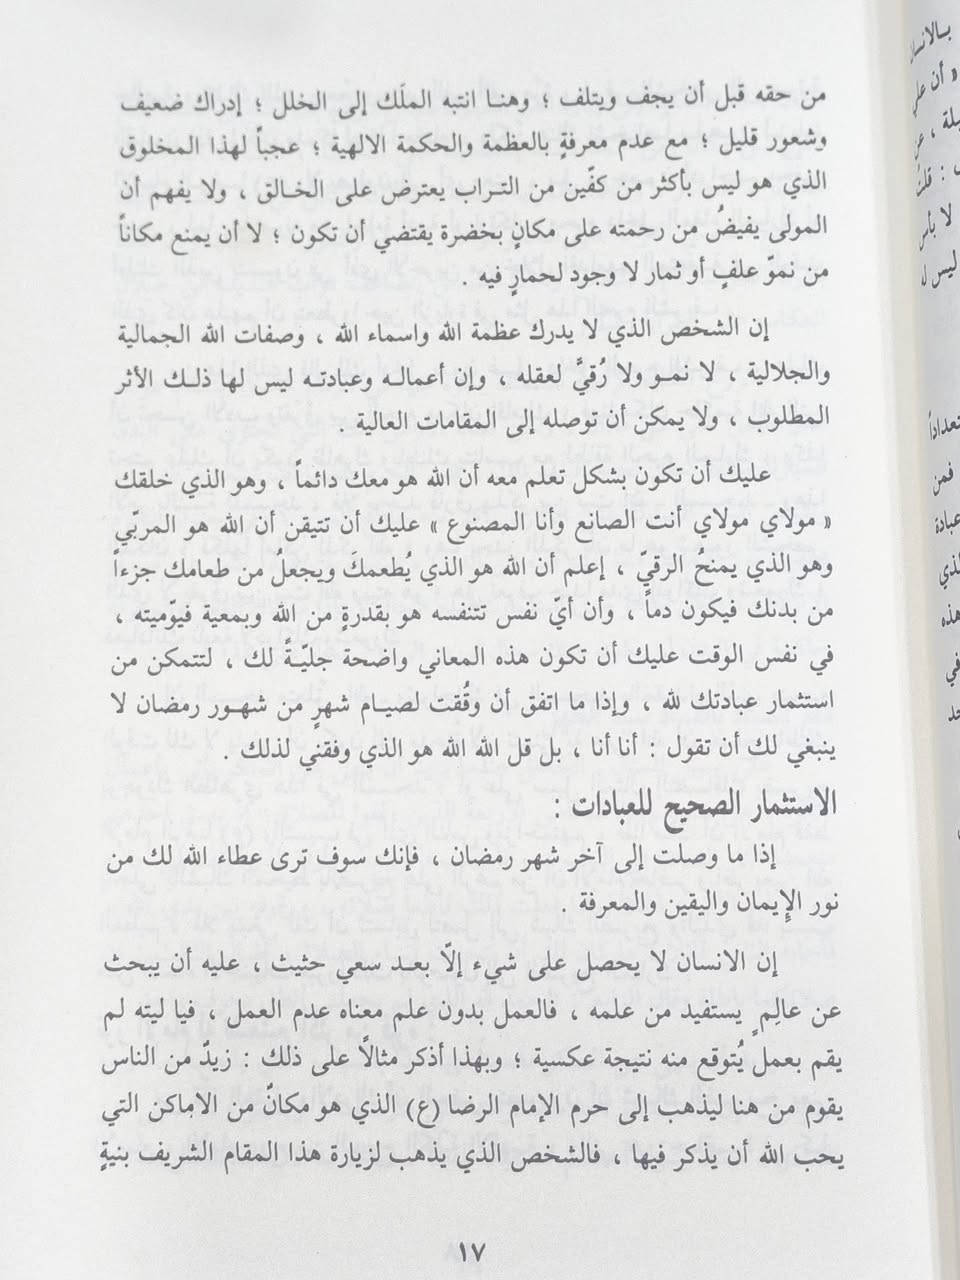 من حقه قبل أن يجف ويتلف ؛ وهنا انتبه الملَك إلى الخلل ؛ إدراك ضعيف
وشعور قليل ؛ مع عدم معرفةٍ بالعظمة والحكمة الالهية ؛ عجباً لهذا المخلوق
الذي هو ليس بأكثر من كفّين من التراب يعترض على الخالق ، ولا يفهم أن
المولى يفيضُ من رحمته على مكانٍ بخضرة يقتضي أن تكون ؛ لا أن يمنع مكاناً
من نموّ علفٍ أو ثمار لا وجود لحمارٍ فيه .
إن الشخص الذي لا يدرك عظمة الله واسماء الله ، وصفات الله الجمالية
والجلالية ، لا نمو ولا رُقيَّ لعقله ، وإن أعماله وعبادته ليس لها ذلك الأثر
المطلوب ، ولا يمكن أن توصله إلى المقامات العالية .
عليك أن تكون بشكل تعلم معه أن الله هو معك دائماً ، وهو الذي خلقك
« مولاي مولاي أنت الصانع وأنا المصنوع » عليك أن تتيقن أن الله هو المربّي
وهو الذي يمنحُ الرقيّ ، إعلم أن الله هو الذي يُطعمكَ ويجعلُ من طعامك جزءاً
من بدنك فيكون دماً ، وأن أيّ نفس تتنفسه هو بقدرةٍ من الله وبمعية قيّوميته ،
في نفس الوقت عليك أن تكون هذه المعاني واضحة جليّةً لك ، لتتمكن من
استثمار عبادتك لله ، وإذا ما اتفق أن وفّقت لصيام شهرٍ من شهور رمضان لا
ينبغي لك أن تقول : أنا أنا ، بل قل الله الله هو الذي وفقني لذلك .
الاستثمار الصحيح للعبادات :
إذا ما وصلت إلى آخر شهر رمضان ، فإنك سوف ترى عطاء الله لك من
نور الإيمان واليقين والمعرفة .
إن الانسان لا يحصل على شيء إلّا بعد سعي حثيث ، عليه أن يبحث
عن عالِمٍ يستفيد من علمه ، فالعمل بدون علم معناه عدم العمل ، فيا ليته لم
يقم بعمل يُتوقع منه نتيجة عكسية ؛ وبهذا أذكر مثالاً على ذلك : زيدٌ من الناس
يقوم من هنا ليذهب إلى حرم الإمام الرضا (ع) الذي هو مكانٌ من الاماكن التي
يحب الله أن يذكر فيها ، فالشخص الذي يذهب لزيارة هذا المقام الشريف بنيةٍ
١٧